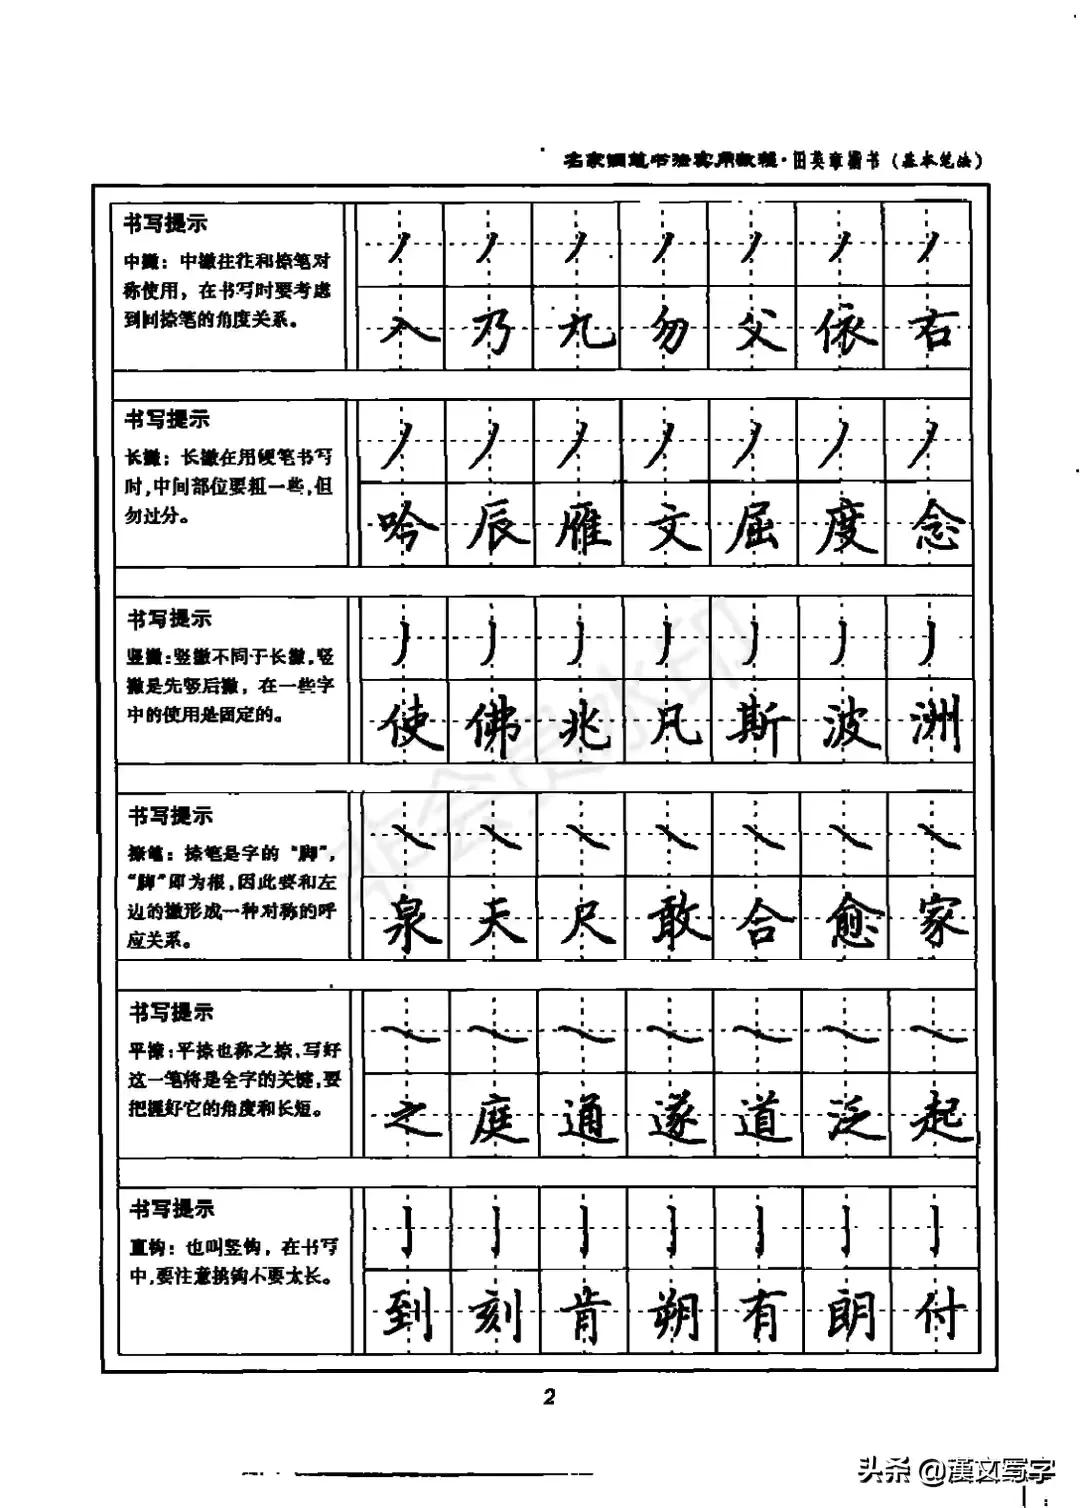 名家钢笔书法实用教程·田英章楷书（基本笔法）
书写提示
中撇：中撇往往和捺笔对
称使用，在书写时要考虑
到同捺笔的角度关系。
入 乃 九 勿 父 依 右
书写提示
长撇：长撇在用硬笔书写
时，中间部位要粗一些，但
勿过分。
吟 辰 雁 文 屈 度 念
书写提示
竖撇：竖撇不同于长撇，竖
撇是先竖后撇，在一些字
中的使用是固定的。
使 佛 兆 凡 斯 波 洲
书写提示
捺笔：捺笔是字的“脚”，
“脚”即为根，因此要和左
边的撇形成一种对称的呼
应关系。
泉 夫 尺 敢 合 愈 家
书写提示
平捺：平捺也称之捺，写好
这一笔将是全字的关键，要
把握好它的角度和长短。
之 庭 通 遂 道 泛 起
书写提示
直钩：也叫竖钩，在书写
中，要注意挑钩不要太长。
到 刻 肯 朔 有 朗 付
非会员水印
2
头条 @漢文写字